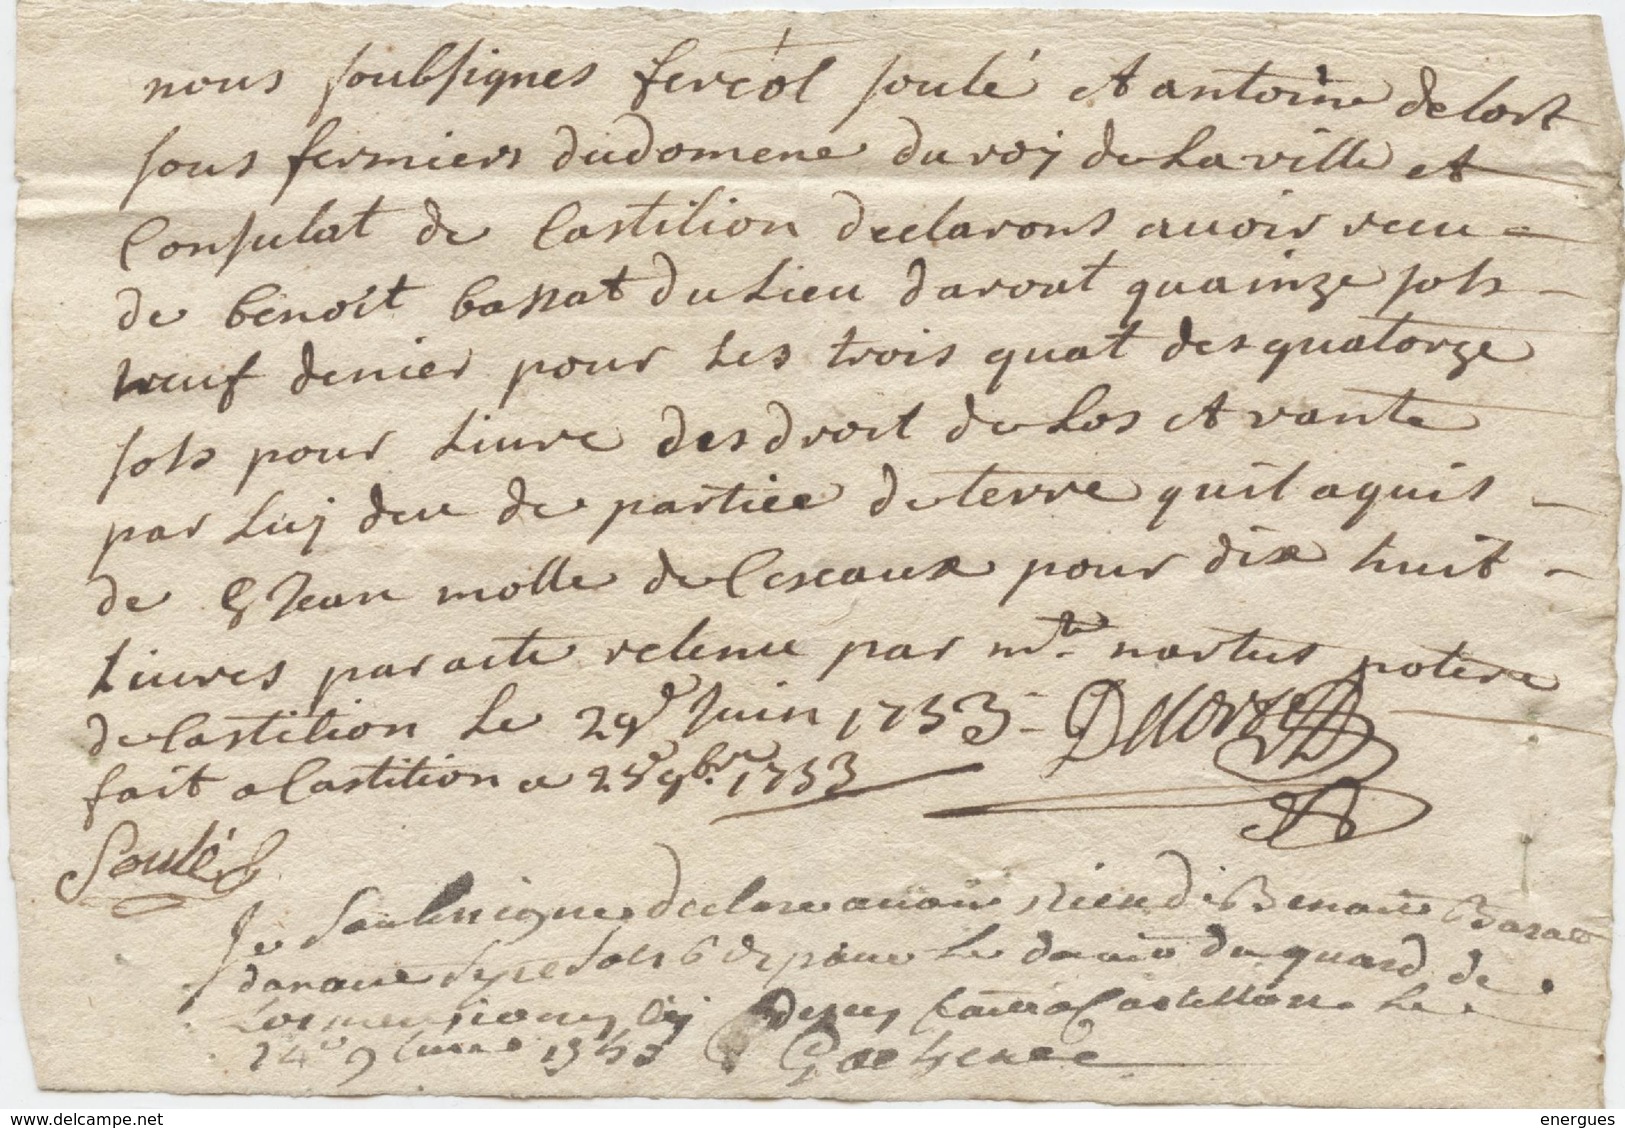 nous soubsignes fereol soulé et antoine delort
sous fermiers du domene du roy de la ville et
Consulat de Castilion declarons avoir receu
de benoit bassat du lieu darout quainze sols
neuf denier pour les trois quat des quatorze
sols pour livre des droit de los et vante
par luy deu de partiee de terre quil aquis
de Jean molle de Cescaux pour dix huit
livres par acte retenu par mtre nortus
de Castilion le 29e Juin 1753
fait a Castilion a 25e 9bre 1753
Soulé
Delort
Je Soubsigne declare avoir rieu de Benoit Basat
daroue sols 6 d pour le du quard de
Castillon le
24e 9 1753
delcampe-fr.com
energues